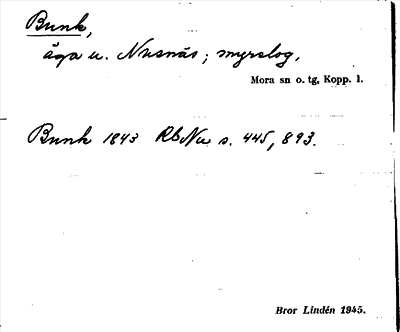 Bunk,
äga u. Nusnäs; myrslog.
Mora sn o. tg, Kopp. l.
Bunk 1843 RbNu s. 445, 893.
Bror Lindén 1945.